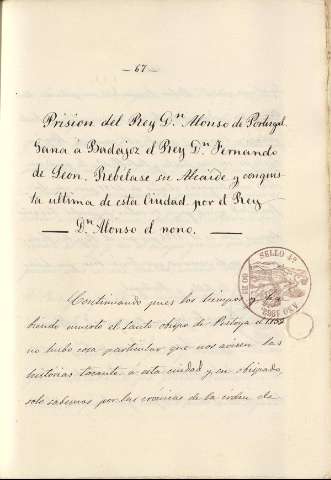 — 67 —
Prision del Rey D.ⁿ Alonso de Portugal.
Gana á Badajoz el Rey D.ⁿ Fernando
de Leon. Rebélase su Alcaide y conquis
ta última de esta Ciudad por el Rey
— D.ⁿ Alonso el nono. —
SELLO 4º
AÑO 1882
Continuando pues los tiempos y ha
biendo muerto el santo obispo de
no hubo cosa particular que nos avisen las
historias tocante a esta ciudad y su obispado,
solo sabemos por las crónicas de la órden de